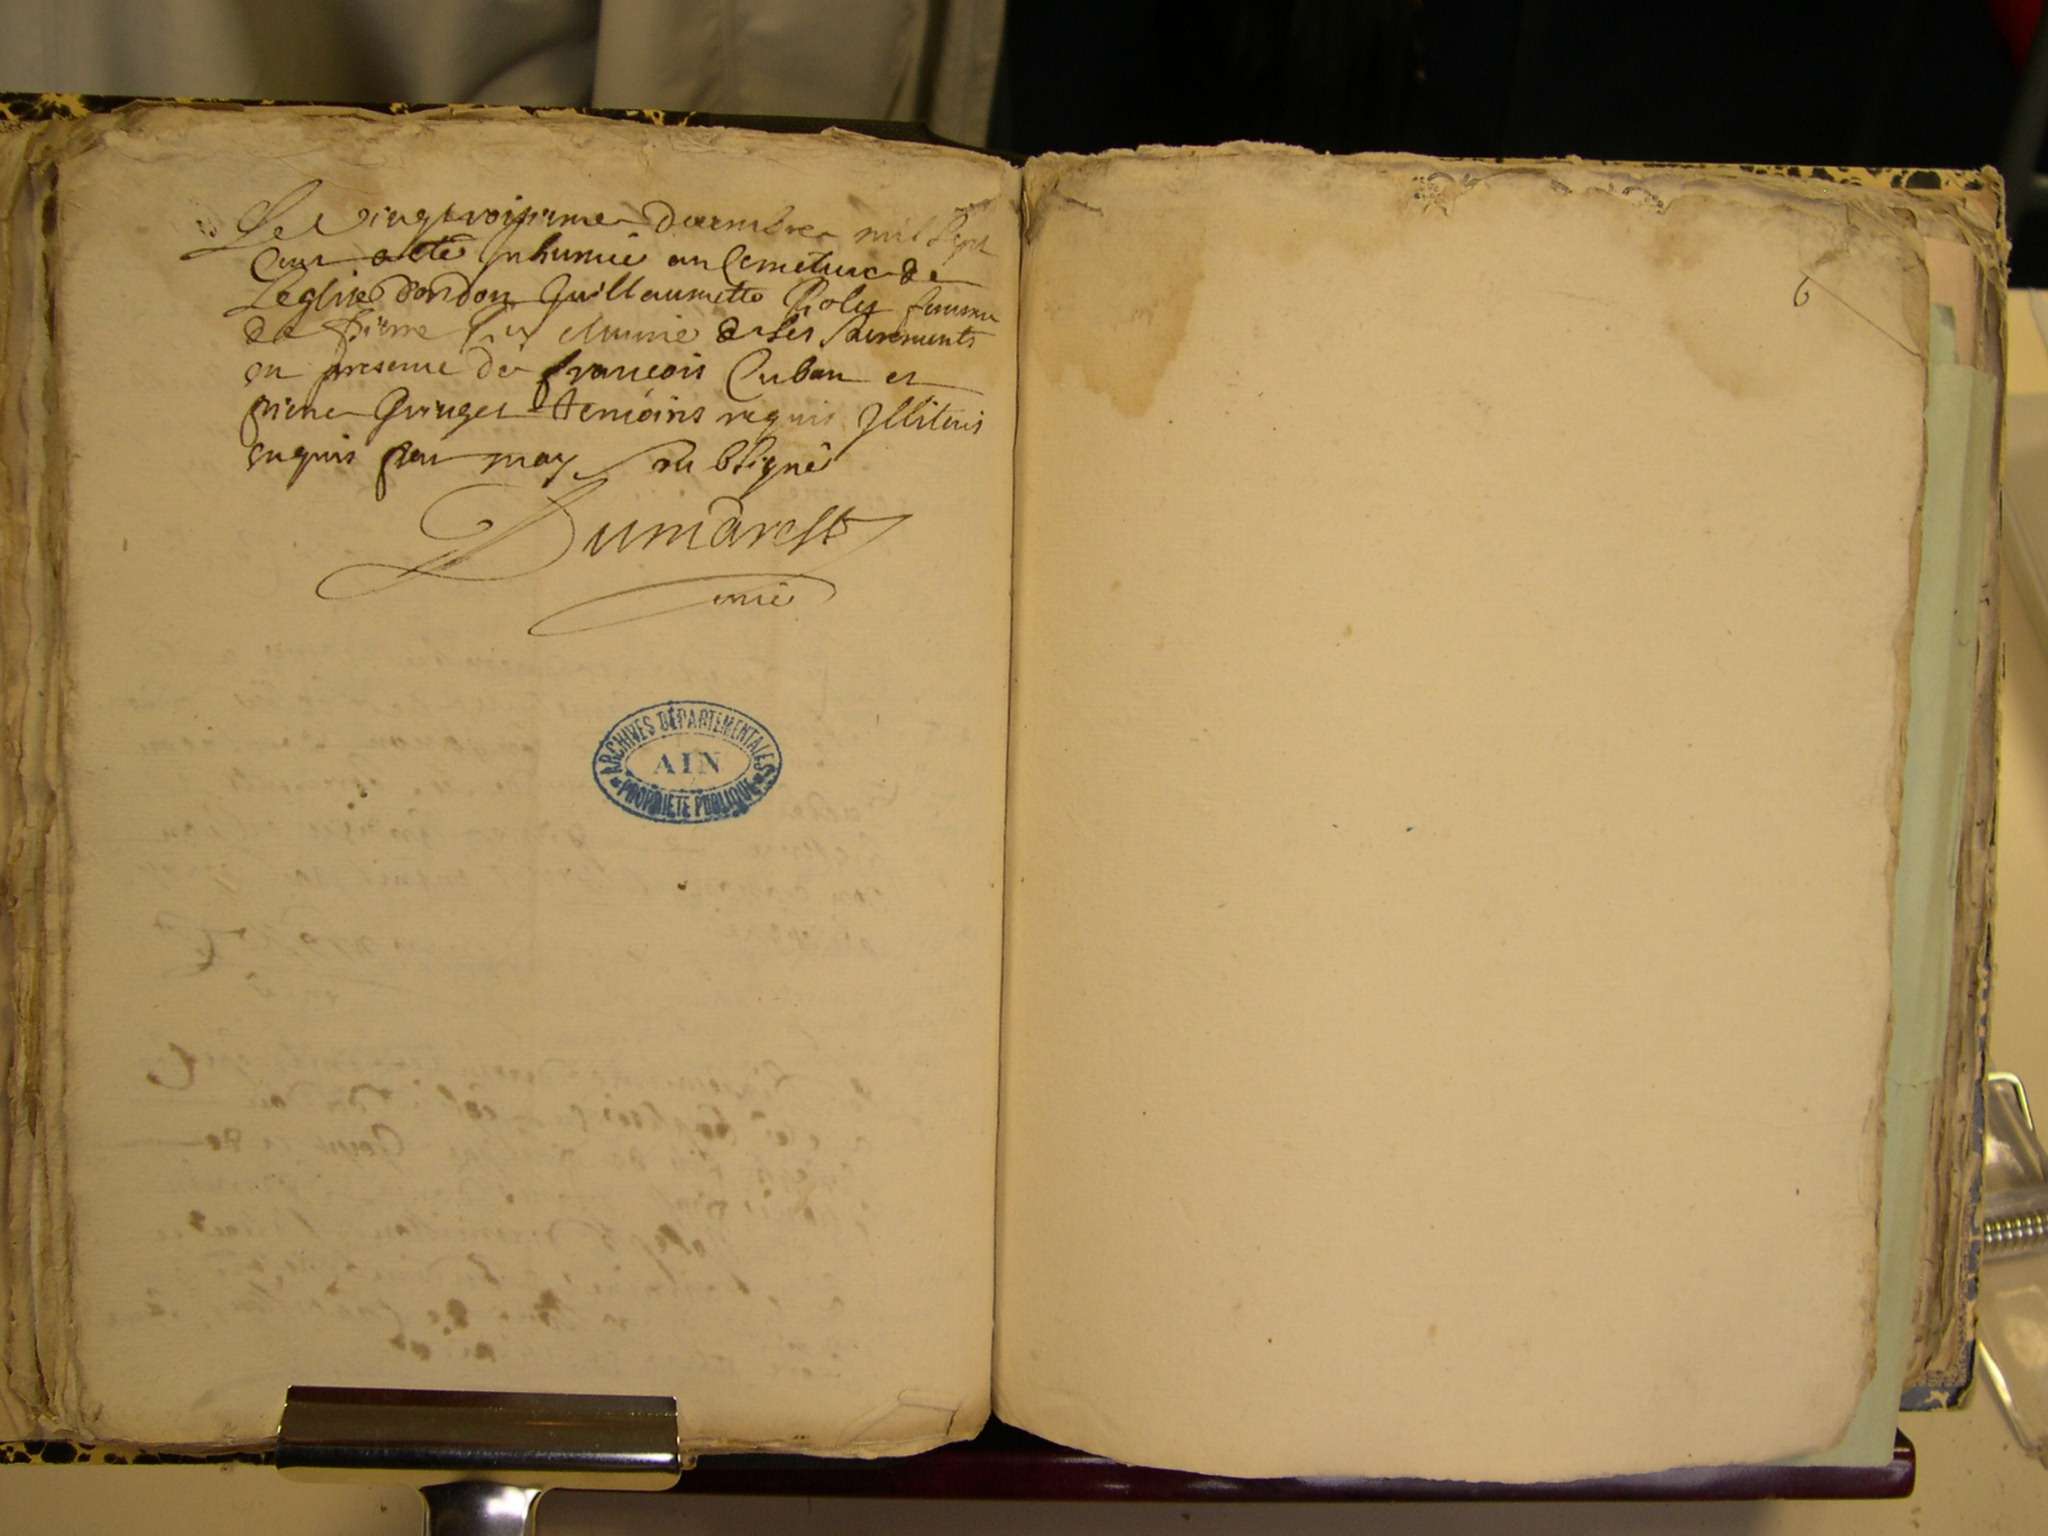 Le vingt troisiemes decembre mil sept
Cens a eté Inhumée au Cemetiere de
Leglise dordon Guillaumette femme
de Pierre munie de ses sacrements
en presence de francois Cuban et
pierre temoins requis Illiteris
enquis par moy soubsigné
Dumarest
curé
ARCHIVES DÉPARTEMENTALES
AIN
PROPRIÉTÉ PUBLIQUE
6